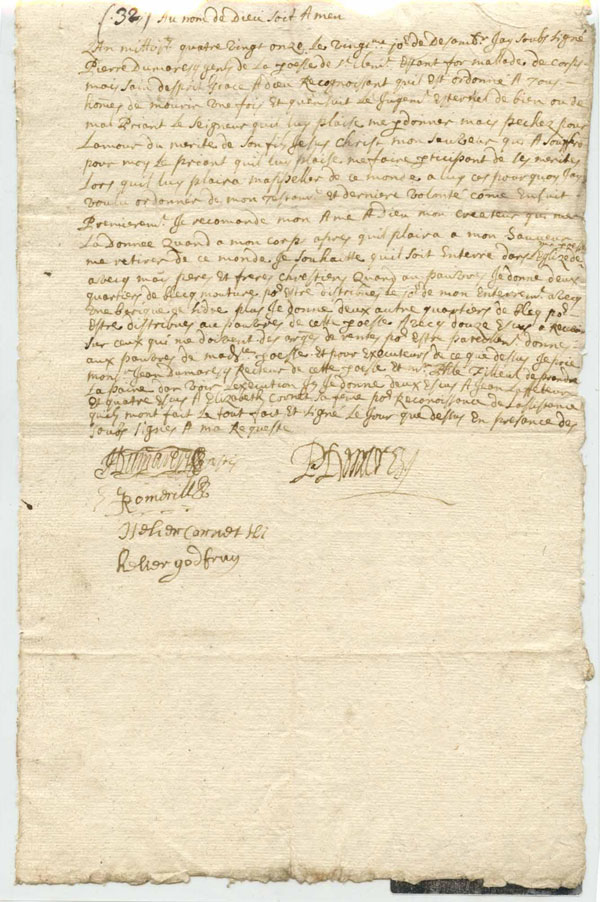 (32) Au nom de Dieu soit Amen
Lan mil quatre vingt onze Le vingt jor de Desambr Jay soubs signé
Pierre Dumaresq gent de La poesse de St Clem Estant for mallade de corps
mais sain desprit Grace A dieu Reconoissant quil Est ordonné A tous
homes de mourir Une fois Et quensuit Le Jugemt Esternel de bien ou de
mal Priant Le Seigneur quil luy plaise me pdonner mais pechez pour
Lamour du merite de son fils Jesus Christ mon sauveur qui A souffri
pour moy Le priant quil luy plaise me faire ptissipant de ses merites
Lors quil luy plaira mappeller de ce monde a luy Ces pourquoy Jay
voulu ordonner de mon Testamt et derniere volonté come Ensuit
Premieremt Je recomande mon Ame A Dieu mon createur qui me
La donnee Quand a mon corps apres quil plaira a mon Sauveur
me retirer de ce monde Je souhaitte quil soit Enterré dans
avecq mais peres Et freres Chrestiens Quand au pauvres Je donne deux
quartiers de bleq mouture por Estre distribues Le jor de mon Enterremt Avecq
Une barique de sidre plus Je donne deux autre quartiers de bleq por
Estre distribues au pauvres de cette poesse Avecq douze Escus a Recevoir
sur ceux qui me doivent des arges de rentes por Estre donne
aux pauvres de poesse Et pour Executeurs de ce que desus Je prie
monsr Jean Dumaresq Recteur de cette poesse Et mr de prendre
La paine den voir Lexecution Je donne deux Escus A Jean
Et quatre Escus A Elizabeth Cornet sa feme por Reconoissance de
quils mont fait Le tout fait Et signé Le Jour que desus En presance des
soubs signes A ma Requeste
Dumaresq
PDumaresq
Romeril
Helier Cornet
helier godfray